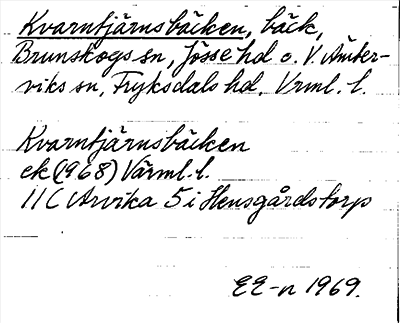 Kvarntjärnsbäcken, bäck,
Brunskogs sn, Jösse hd o. V. Ämter-
viks sn, Fryksdals hd, Vrml. l.
Kvarntjärnsbäcken
ek (1968) Värml. l.
11 C Arvika 5 i Hensgårdstorp
EE-n 1969.